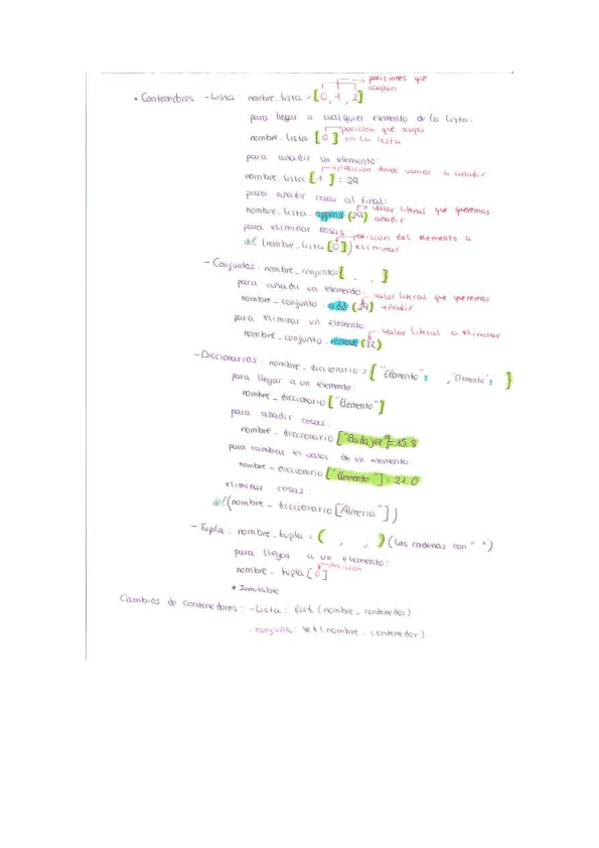 posiciones que
ocupan
• Contenedores - Lista nombre_lista = [0, 1, 2]
para llegar a cualquier elemento de la lista:
nombre_lista [0] posición que ocupa
en la lista
para añadir un elemento:
nombre_lista [1] = 29 posición donde vamos a añadir
para añadir cosas al final:
nombre_lista.append (29) valor literal que queremos
añadir
para eliminar cosas:
del (nombre_lista [0]) posición del elemento a
eliminar
- Conjuntos: nombre_conjunto={ , , }
para añadir un elemento:
nombre_conjunto.add (24) valor literal que queremos
añadir
para eliminar un elemento
nombre_conjunto.remove (32) valor literal a eliminar
- Diccionarios: nombre_diccionario = { "Elemento": , "Elemento": }
para llegar a un elemento:
nombre_diccionario ["Elemento"]
para añadir cosas:
nombre_diccionario ["Badajoz"]=15.8
para cambiar el valor de un elemento:
nombre_diccionario ["Elemento"] = 21.0
eliminar cosas:
del(nombre_diccionario ["Almeria"])
- Tupla: nombre_tupla = ( , , ) (las cadenas con " ")
para llegar a un elemento:
nombre_tupla [0] posición
* Inmutable
Cambios de contenedores: - Lista: list (nombre_contenedor)
- conjunto: set (nombre_contenedor)